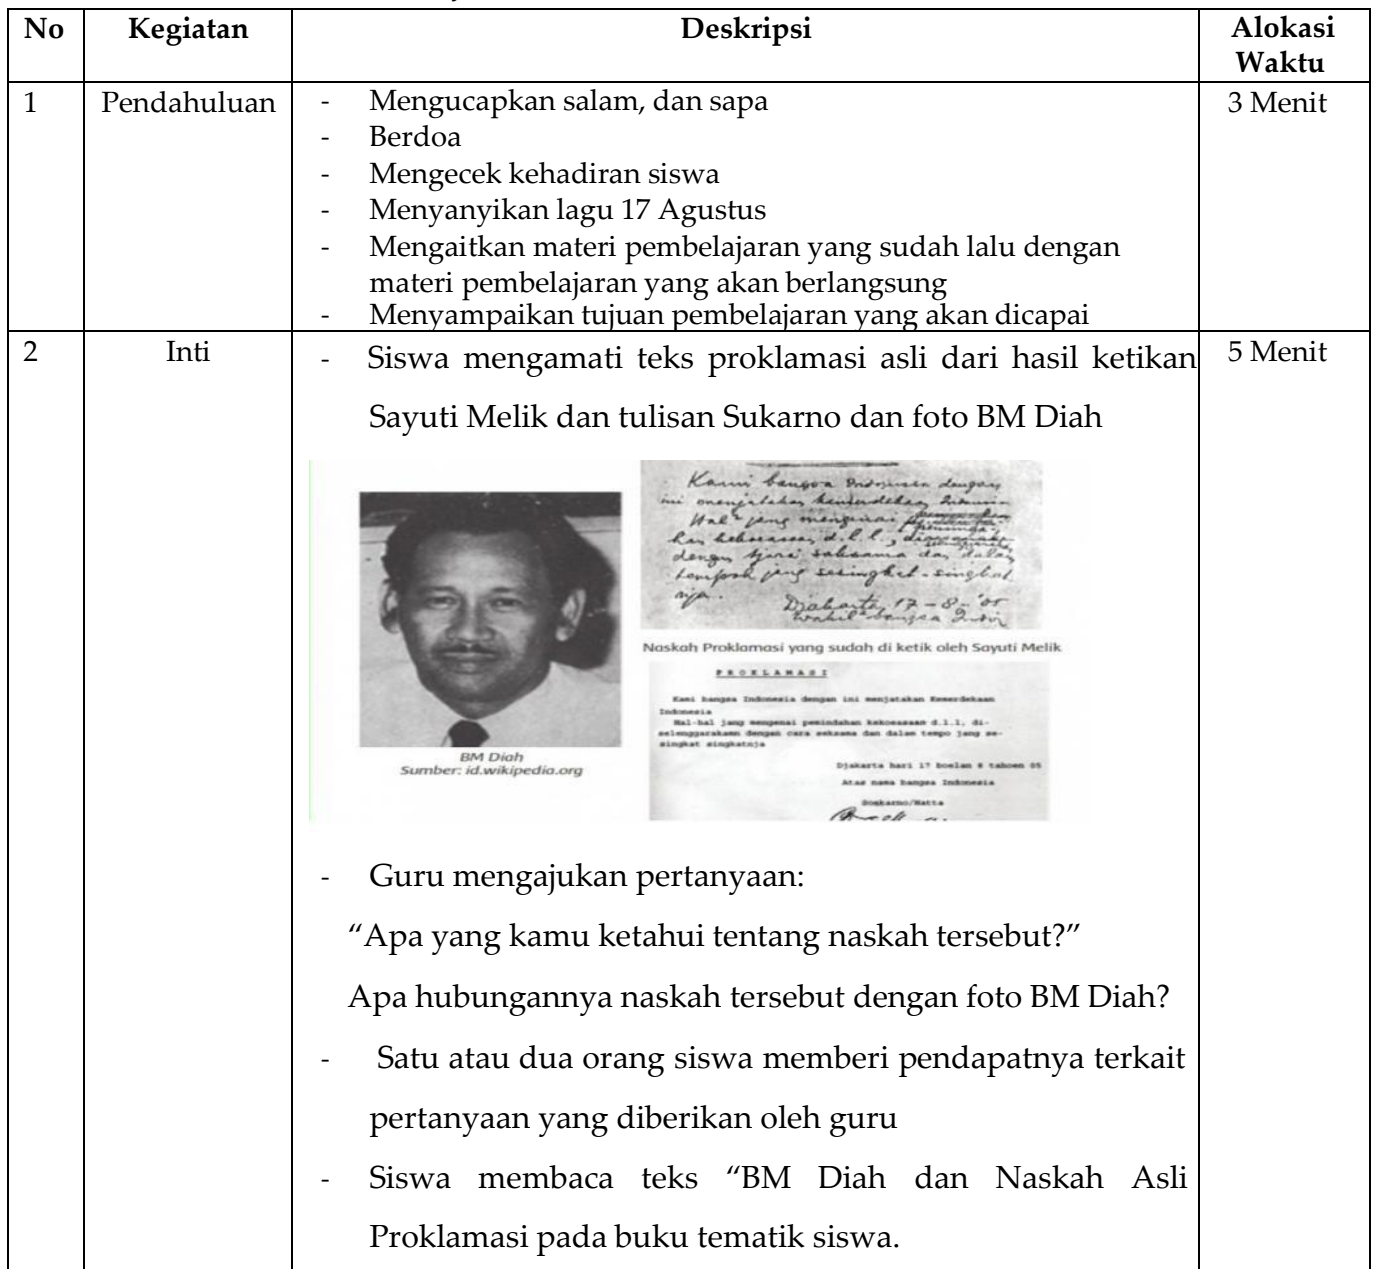 No
Kegiatan
Deskripsi
Alokasi
Waktu
1
Pendahuluan
- Mengucapkan salam, dan sapa
- Berdoa
- Mengecek kehadiran siswa
- Menyanyikan lagu 17 Agustus
- Mengaitkan materi pembelajaran yang sudah lalu dengan
materi pembelajaran yang akan berlangsung
- Menyampaikan tujuan pembelajaran yang akan dicapai
3 Menit
2
Inti
- Siswa mengamati teks proklamasi asli dari hasil ketikan
Sayuti Melik dan tulisan Sukarno dan foto BM Diah
5 Menit
Kami bangsa Indonesia dengan
ini menjatakan kemerdekaan
Hal² jang mengenai
d.l.l.,
dengan tjara saksama dan dalam
tempoh jang sesingkat-singkat
nja.
Djakarta, 17-8-'05
Wakil bangsa
Naskah Proklamasi yang sudah di ketik oleh Sayuti Melik
PROKLAMASI
Kami bangsa Indonesia dengan ini menjatakan Kemerdekaan
Indonesia
Hal-hal jang mengenai pemindahan kekoeasaan d.l.l, di-
selenggarakan dengan cara seksama dan dalam tempo jang se-
singkat singkatnja
Djakarta hari 17 boelan 8 tahoen 05
Atas nama bangsa Indonesia
Soekarno/Hatta
BM Diah
Sumber: id.wikipedia.org
- Guru mengajukan pertanyaan:
“Apa yang kamu ketahui tentang naskah tersebut?”
Apa hubungannya naskah tersebut dengan foto BM Diah?
- Satu atau dua orang siswa memberi pendapatnya terkait
pertanyaan yang diberikan oleh guru
- Siswa membaca teks “BM Diah dan Naskah Asli
Proklamasi pada buku tematik siswa.